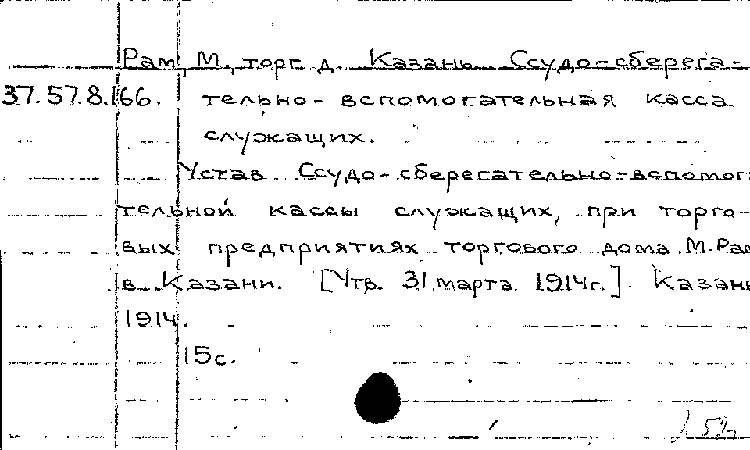 Рам, М., торг. д. Казань. Ссудо-сберега-
37.57.8.166. тельно-вспомогательная касса
служащих.
Устав Ссудо-сберегательно-вспомога
тельной кассы служащих, при торго-
вых предприятиях торгового дома М.Рам
в Казани. [Утв. 31 марта 1914г.] Казань
1914.
15с.